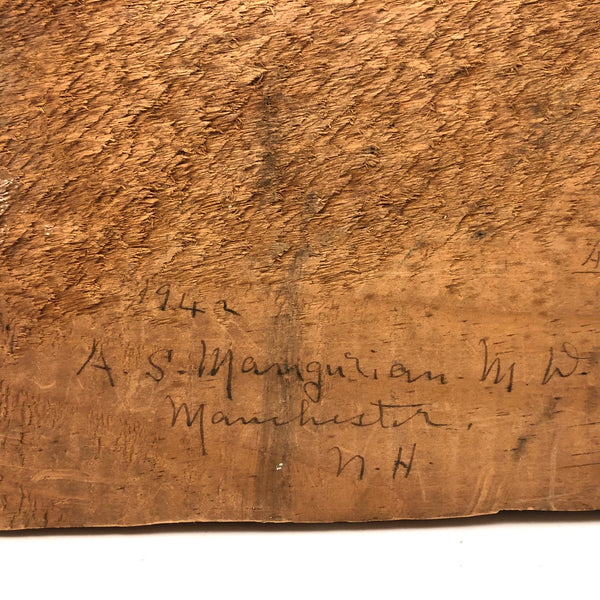 1942
A. S. Mangurian. M. D.
Manchester,
N. H.